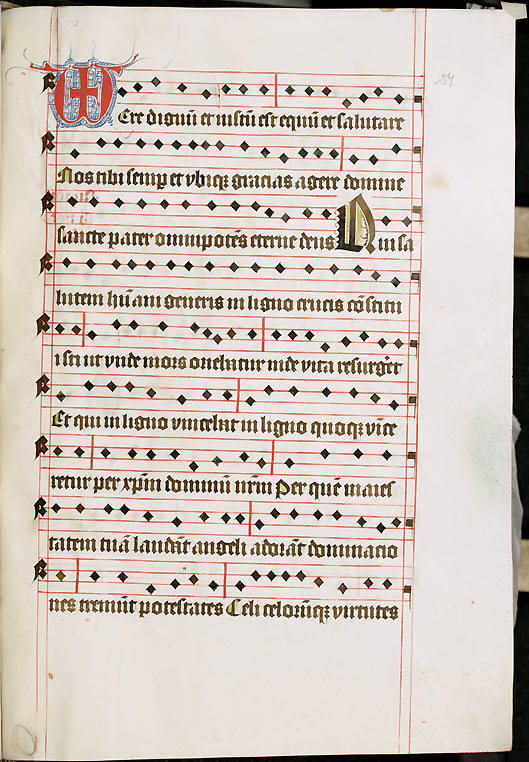 54
VEre dignū et iustū est equū et salutare
Nos tibi semp et vbiqꝫ gracias agere domine
sancte pater omnipotēs eterne deus Qui sa
lutem hūani generis in ligno crucis cōstitu
isti ut vnde mors oriebatur inde vita resurgēt
Et qui in ligno vincebat in ligno quoqꝫ vīce
retur per xpm̄ dominū nrm̄ Per quē maies
tatem tuā laudāt angeli adorāt dominacio
nes tremūt potestates Celi celorūqꝫ virtutes